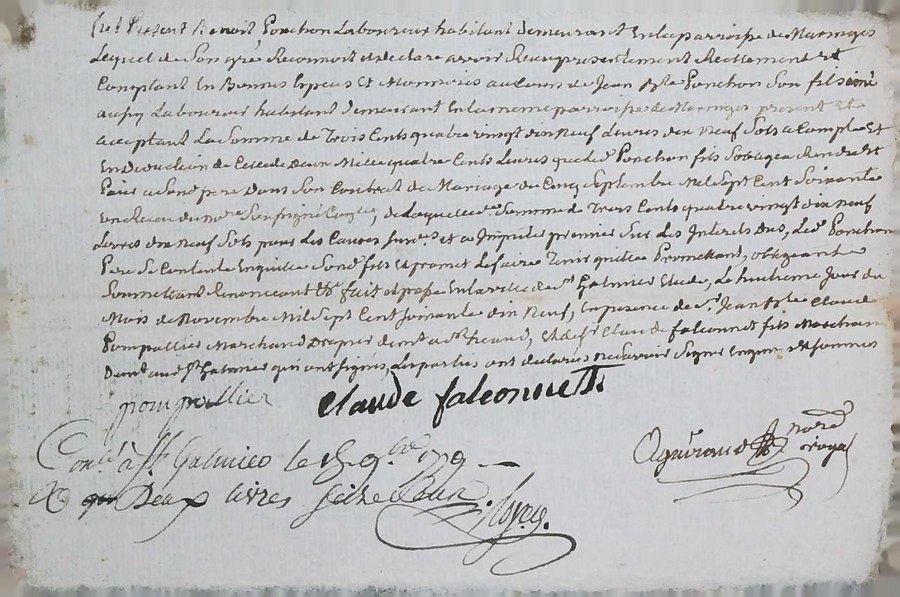 fut Present Benoit Ponchon Laboureur habitant demeurant En la parroisse de Marenges
Lequel de Son gré Reconnoit et declare avoir Reçu presentement Reellement Et
Comptant En Bonnes Especes Et Monnoies au Cours de Jean Bte Ponchon Son fils
aussy Laboureur habitant demeurant En la meme parroisse de Marenges present Et
acceptant La Somme de Trois Cents quatre vingt dix Neuf Livres dix Neuf Sols a Compte Et
En Deduction de Celle de deux Mille quatre Cents Livres que led Ponchon fils S'obligea Rendre Et
Paier a Sond pere dans Son Contrat de Mariage du Cinq Septembre Mil Sept Cent Soixante
un Receu du Nore Soussigné de Laquelle de Somme de Trois Cents quatre vingt dix Neuf
Livres dix Neuf Sols pour Les Causes Susdes et a Imputer premier Sur Les Interets Dus, Led Ponchon
Pere Se Contente En quitte Sond fils Et promet Le faire Tenir quitte Promettant, obligeant
Soumettant Renonceant &c fait et passé En la ville de St Galmier Etude, Le huitieme Jour du
Mois de Novembre Mil Sept Cent Soixante dix Neuf, En presence de Sr Jean Bte Claude
Pompallier Marchand Drapier demt a St heand, Et de Sr Claude falconnet fils Marchand
Demt aud St Galmier qui ont signés, Les parties ont declarés ne Savoir Signer Enquis Et Sommés
pompallier Claude falconnett
nore royal
Conlé à St Galmier le 9bre 1779
deux livres seize